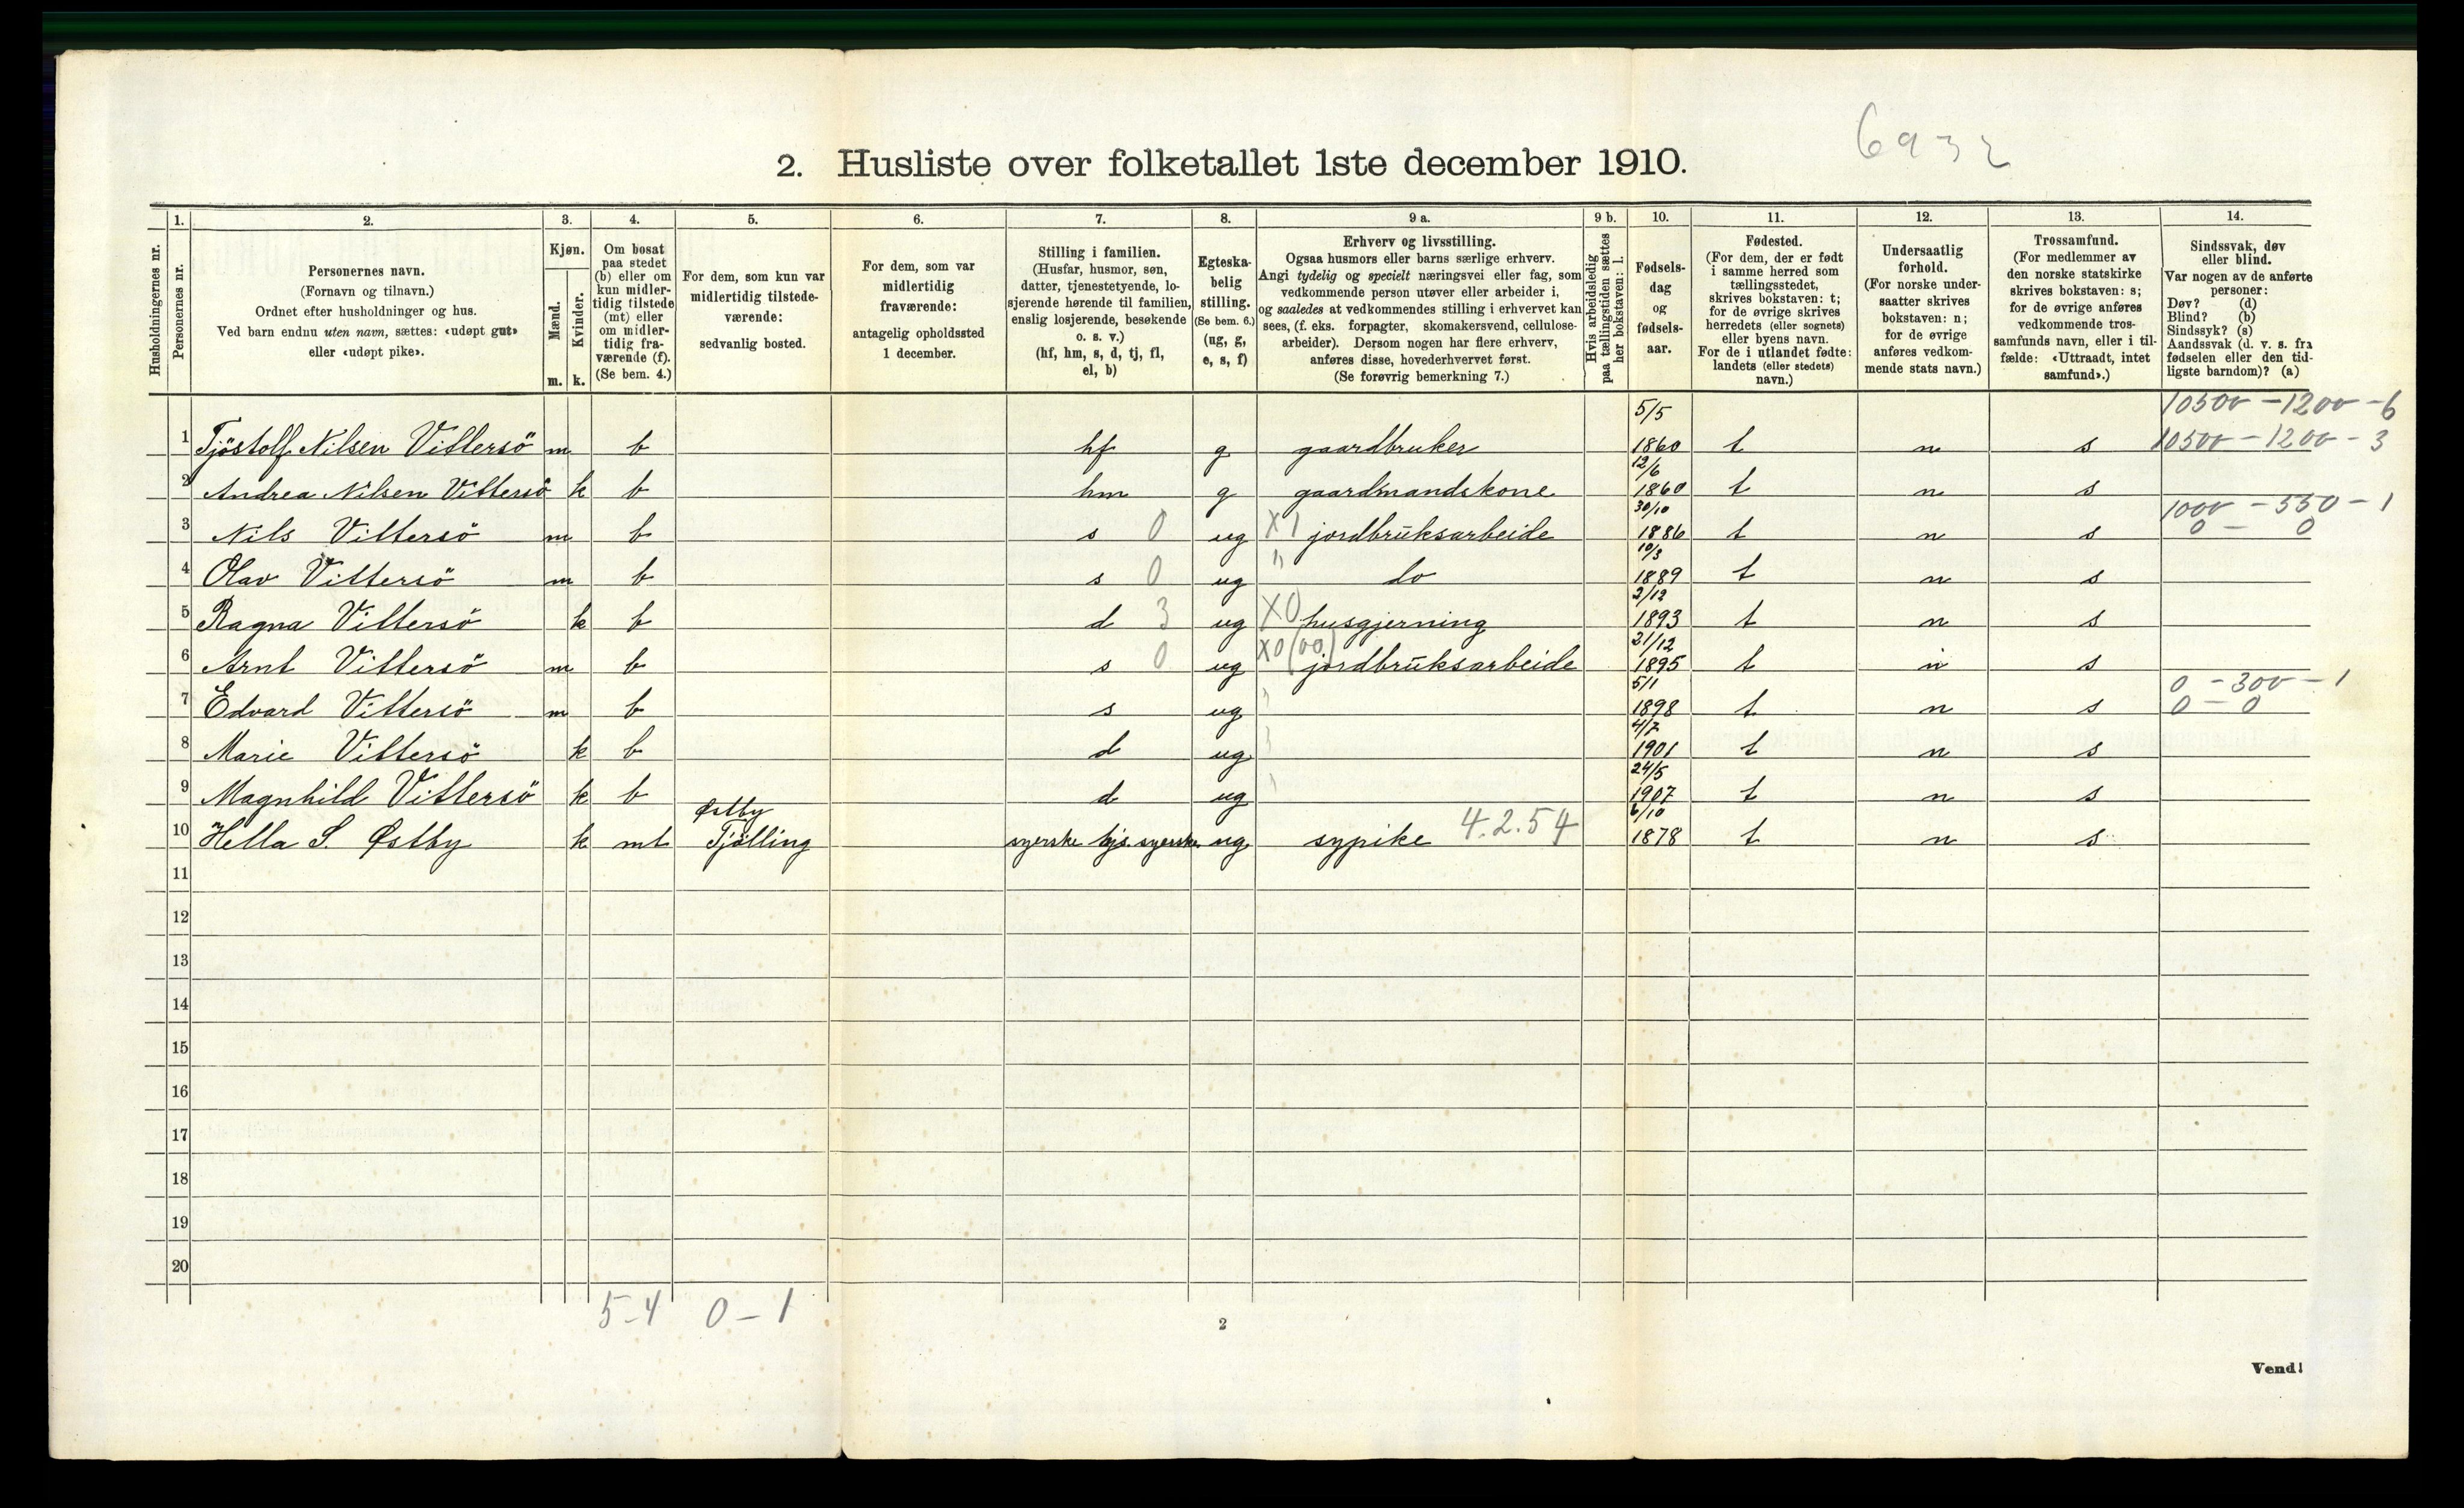 6932
2. Husliste over folketallet 1ste december 1910.
Husholdningernes nr.
1.
Personernes nr.
2.
Personernes navn.
(Fornavn og tilnavn.)
Ordnet efter husholdninger og hus.
Ved barn endnu uten navn, sættes: «udøpt gut»
eller «udøpt pike».
3.
Kjøn.
Mænd.
Kvinder.
m. k.
4.
Om bosat
paa stedet
(b) eller om
kun midler-
tidig tilstede
(mt) eller
om midler-
tidig fra-
værende (f).
(Se bem. 4.)
5.
For dem, som kun var
midlertidig tilstede-
værende:
sedvanlig bosted.
6.
For dem, som var
midlertidig
fraværende:
antagelig opholdssted
1 december.
7.
Stilling i familien.
(Husfar, husmor, søn,
datter, tjenestetyende, lo-
sjerende hørende til familien,
enslig losjerende, besøkende
o. s. v.)
(hf, hm, s, d, tj, fl,
el, b)
8.
Egteska-
belig
stilling.
(Se bem. 6.)
(ug, g,
e, s, f)
9 a.
Erhverv og livsstilling.
Ogsaa husmors eller barns særlige erhverv.
Angi tydelig og specielt næringsvei eller fag, som
vedkommende person utøver eller arbeider i,
og saaledes at vedkommendes stilling i erhvervet kan
sees, (f. eks. forpagter, skomakersvend, cellulose-
arbeider). Dersom nogen har flere erhverv,
anføres disse, hovederhvervet først.
(Se forøvrig bemerkning 7.)
9 b.
Hvis arbeidsledig
paa tællingstiden sættes
her bokstaven: l.
10.
Fødsels-
dag
og
fødsels-
aar.
11.
Fødested.
(For dem, der er født
i samme herred som
tællingsstedet,
skrives bokstaven: t;
for de øvrige skrives
herredets (eller sognets)
eller byens navn.
For de i utlandet fødte:
landets (eller stedets)
navn.)
12.
Undersaatlig
forhold.
(For norske under-
saatter skrives
bokstaven: n;
for de øvrige
anføres vedkom-
mende stats navn.)
13.
Trossamfund.
(For medlemmer av
den norske statskirke
skrives bokstaven: s;
for de øvrige anføres
vedkommende tros-
samfunds navn, eller i til-
fælde: «Uttraadt, intet
samfund».)
14.
Sindssvak, døv
eller blind.
Var nogen av de anførte
personer:
Døv? (d)
Blind? (b)
Sindssyk? (s)
Aandssvak (d. v. s. fra
fødselen eller den tid-
ligste barndom)? (a)
10500 - 1200 - 6
1 Tjöstolf Nilsen Vittersö m b hf g gaardbruker 5/5 1860 t n s 10500 - 1200 - 3
2 Andrea Nilsen Vittersö k b hm g gaardmandskone 12/6 1860 t n s
1000 - 550 - 1
3 Nils Vittersö m b s 0 ug X1 jordbruksarbeide 30/10 1886 t n s 0 - 0
4 Olav Vittersö m b s 0 ug " do 10/3 1889 t n s
5 Ragna Vittersö k b d 3 ug X0 husgjerning 2/12 1893 t n s
6 Arnt Vittersö m b s 0 ug X0(00) jordbruksarbeide 21/12 1895 t n s
0 - 300 - 1
7 Edvard Vittersö m b s ug 5/1 1898 t n s 0 - 0
8 Marie Vittersö k b d ug 4/7 1901 t n s
9 Magnhild Vittersö k b d ug 24/5 1907 t n s
10 Hella S. Østby k mt Østby Tjölling syerske hjs. syerske ug sypike 4.2.54 6/10 1878 t n s
11
12
13
14
15
16
17
18
19
20
5-4 0-1
2
Vend!